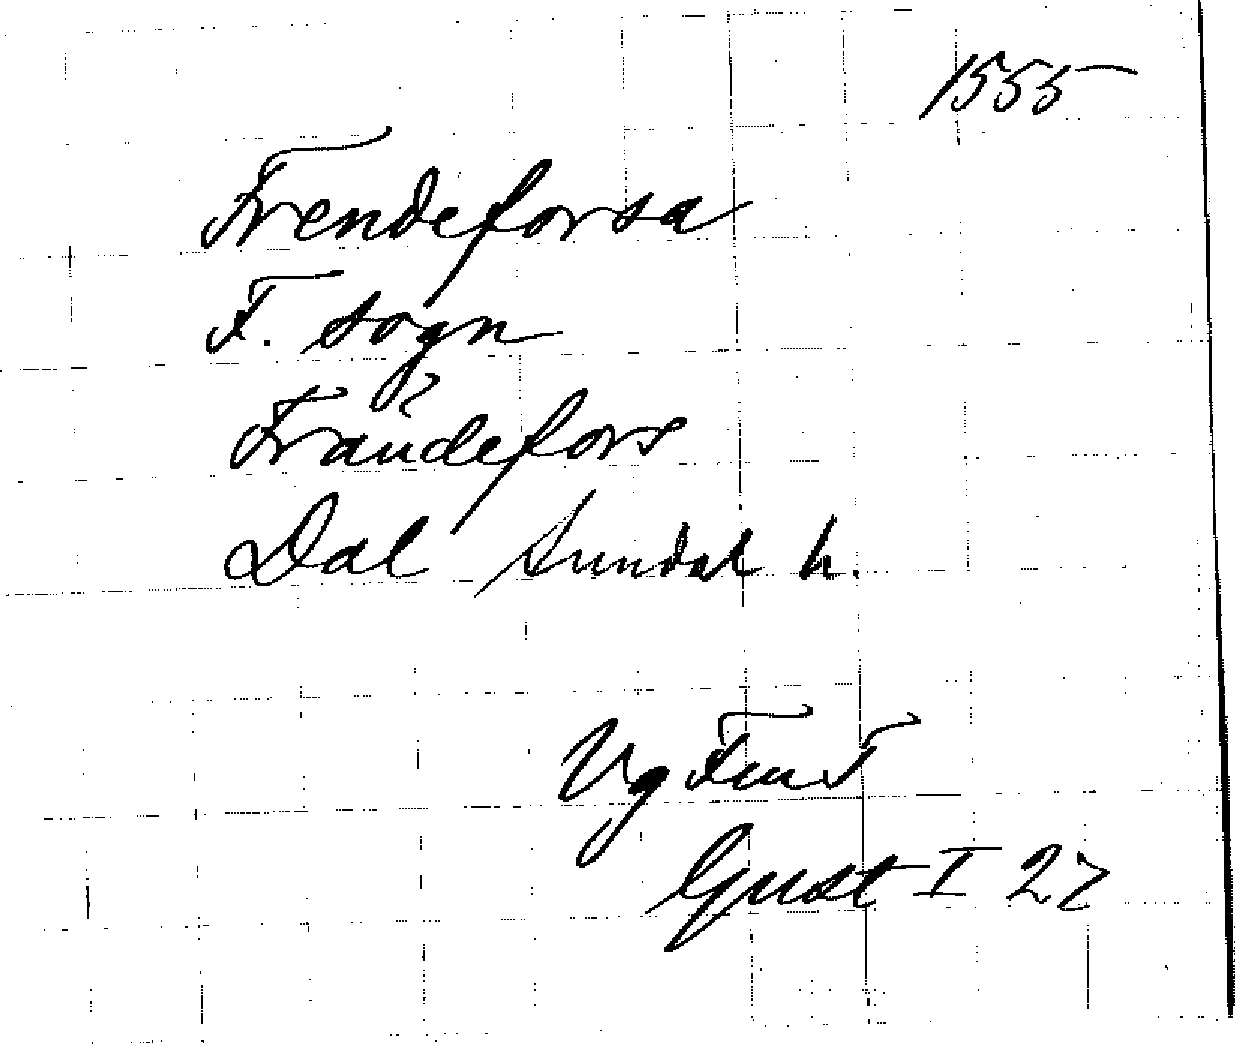 1555
Frendeforsa
F. sogn
Frändefors
Dal Sundal h.
Vg
Gust I 27